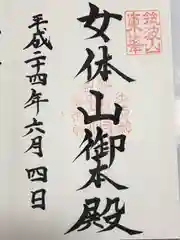 筑波山
東峯
女体山御本殿
平成二十四年六月四日